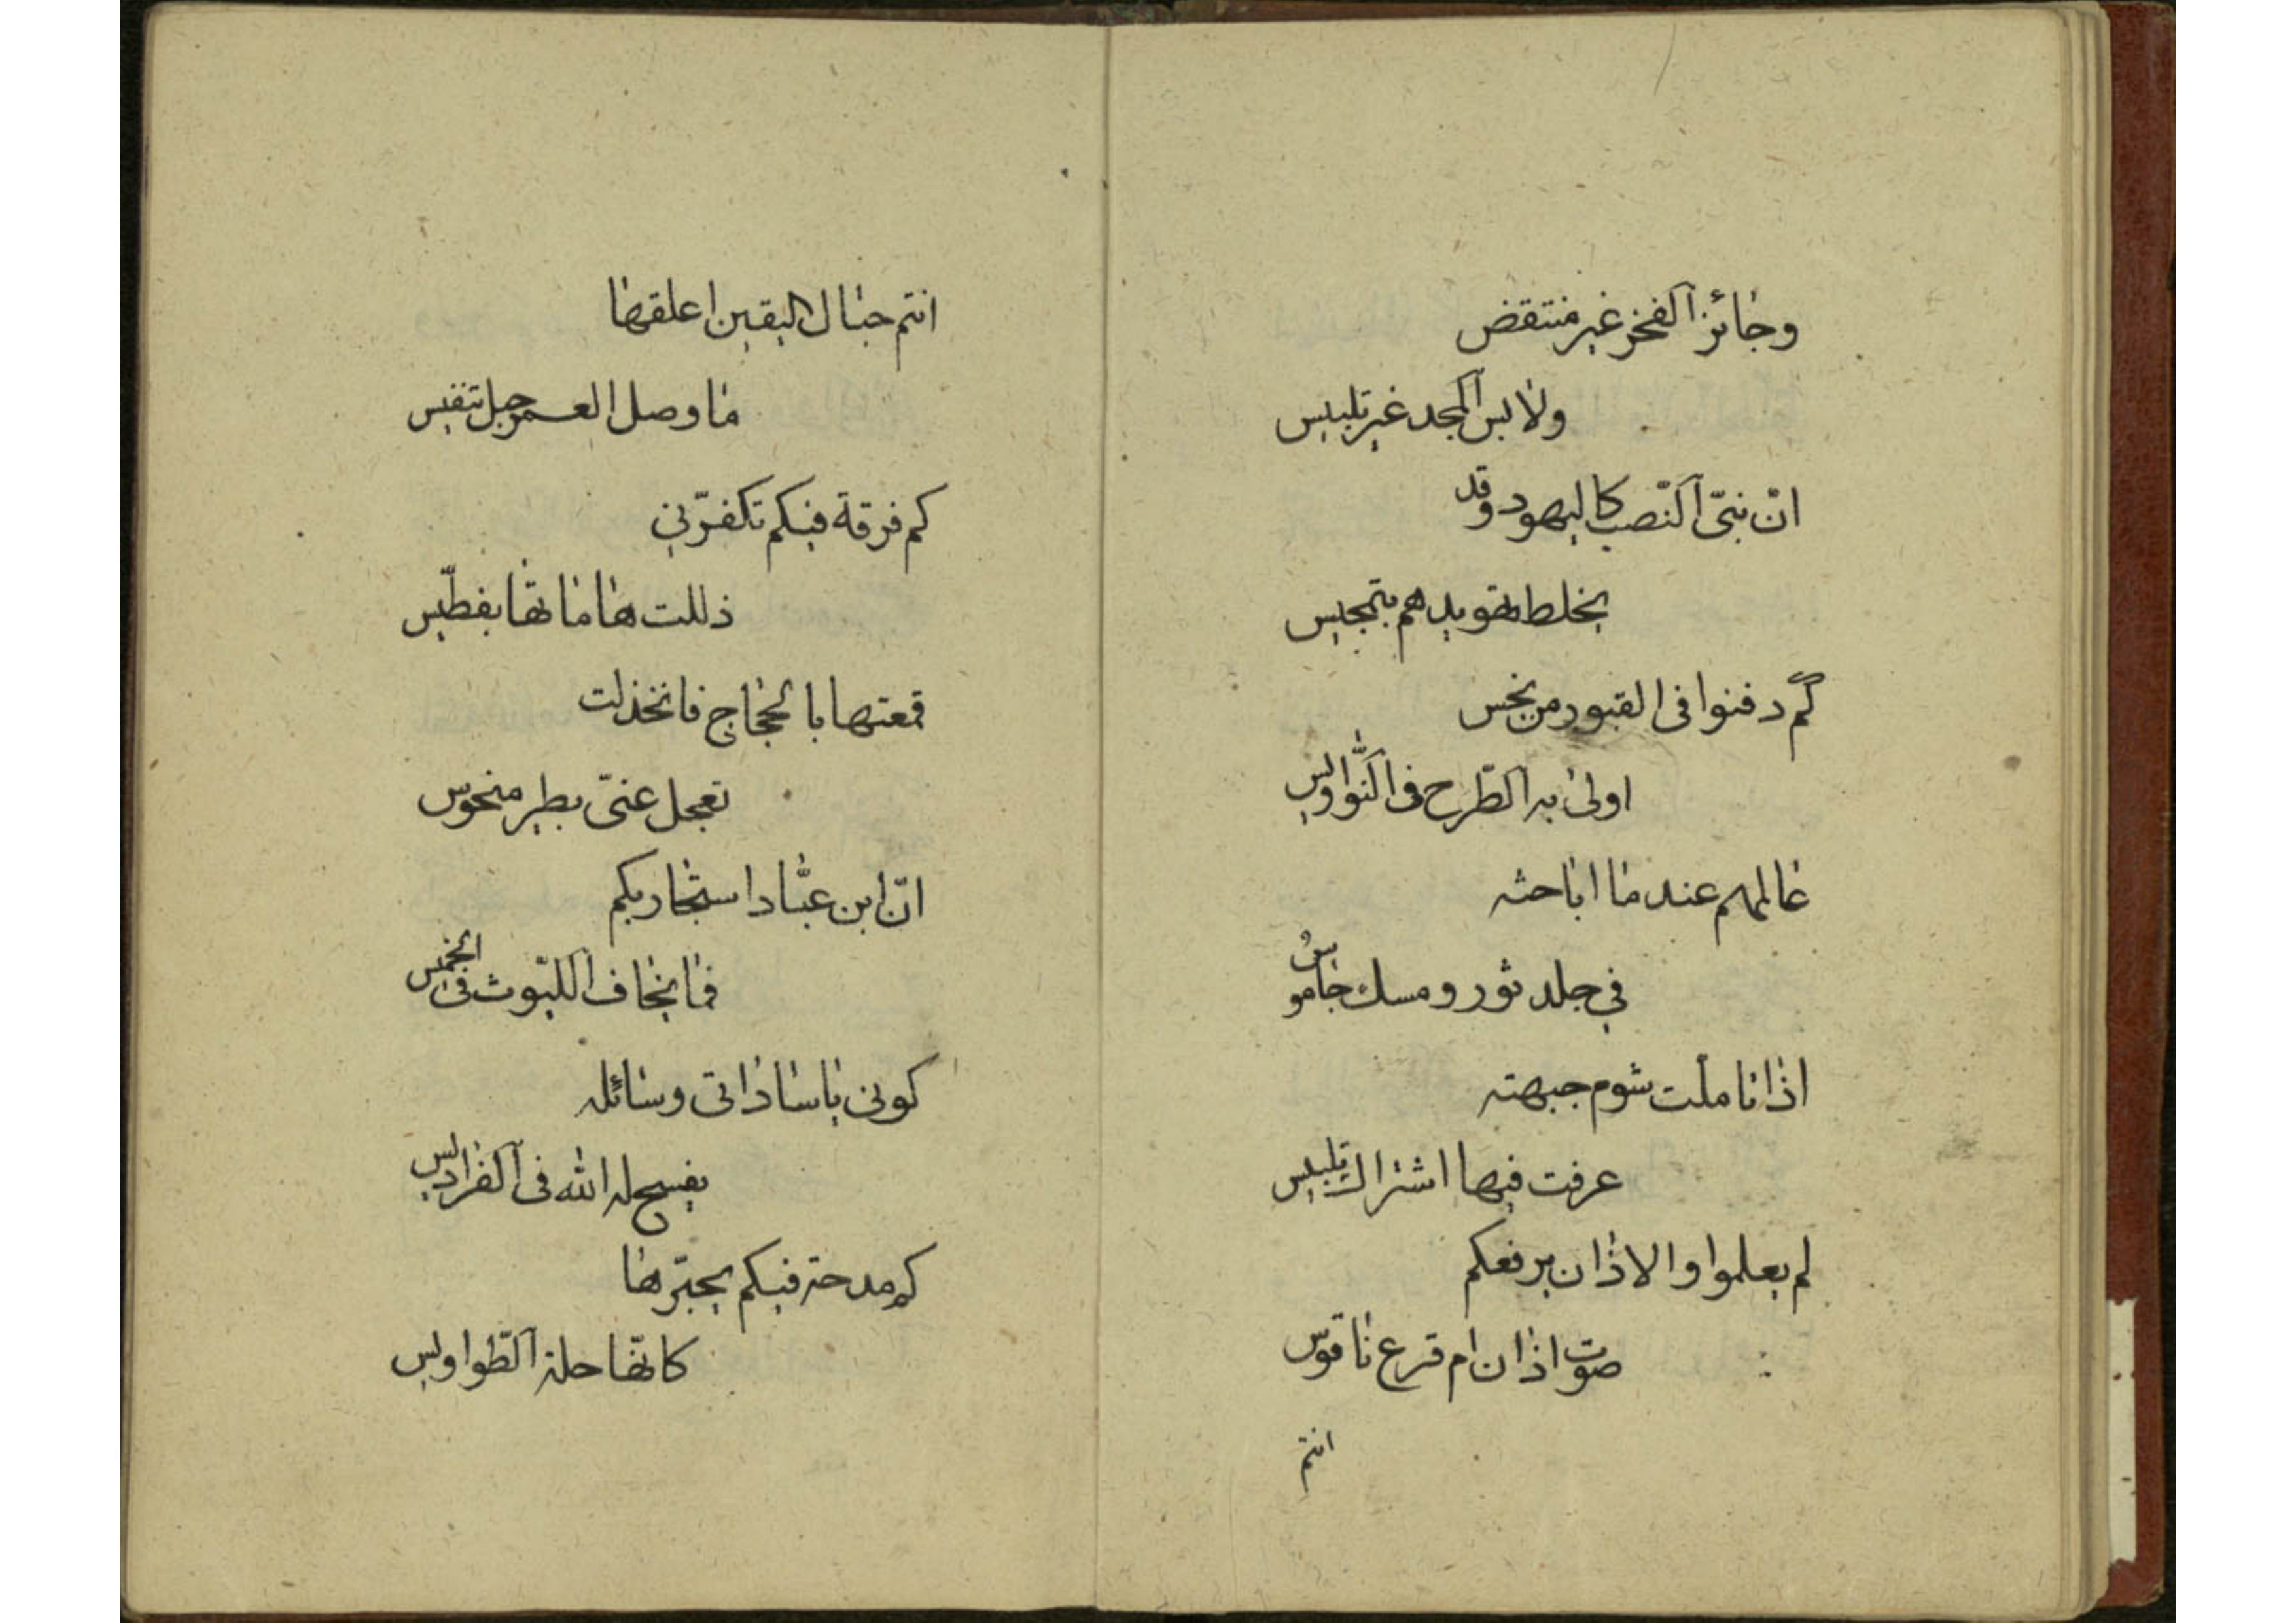 وحائز الفخر غير منتقض
ولابس المجد غير تلبيس
انّ بنى النّصب كاليهود وقد
يخلط تهويدهم بتمجيس
كم دفنوا فى القبور من نجس
اولى به الطّرح فى النّواويس
عالمهم عند ما اباحثه
في جلد ثور ومسك جاموس
اذا تاملت شوم جبهته
عرفت فيها اشتراك تلبيس
لم يعلموا والاذان يرفعكم
صوت اذان ام قرع ناقوس
انتم
انتم حبال اليقين اعلقها
ما وصل العمر حبل تنفيس
كم فرقة فيكم تكفّرني
ذللت هاماتها بفطّيس
قمعتها بالحجاج فانخذلت
تعجل عنّى بطير منحوس
انّ ابن عبّاد استجار بكم
فما يخاف اللّيوث فى الخميس
كونى يا ساداتى وسائله
يفسح له الله فى الفراديس
كم مدحة فيكم يحبّرها
كانّها حلة الطّواويس